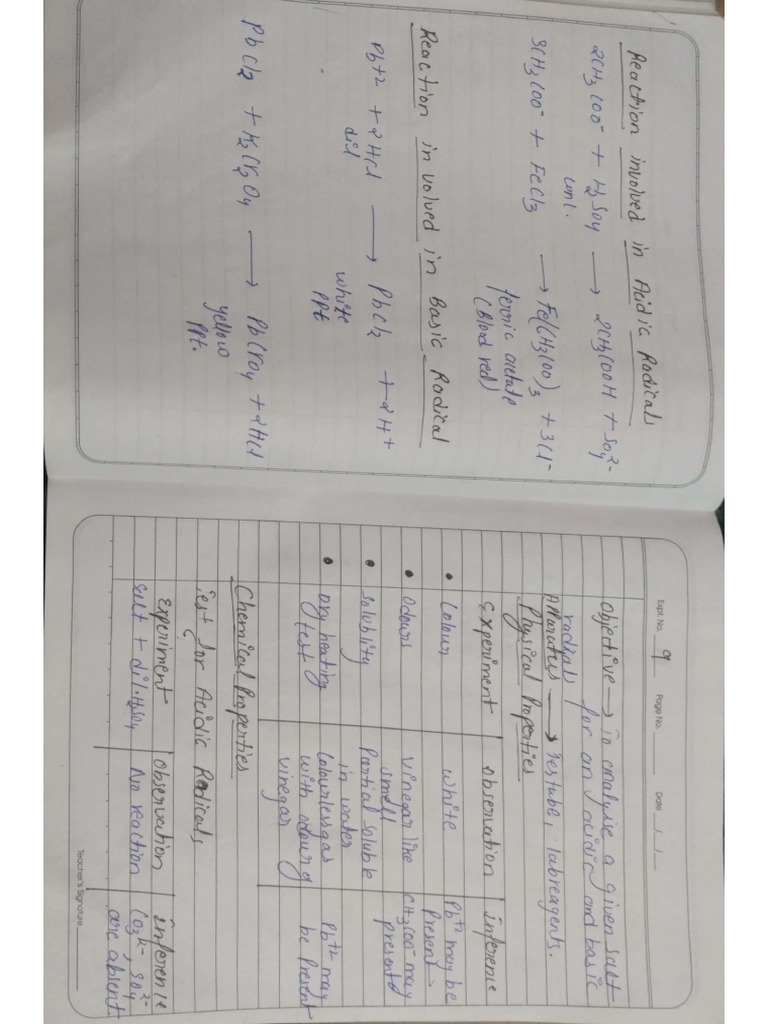 Reaction involved in Acidic Radicals
2CH3COO- + H2SO4 ⟶ 2CH3COOH + SO4 2-
conl.
3CH3COO- + FeCl3 ⟶ Fe(CH3COO)3 + 3Cl-
ferric acetate
(Blood red)
Reaction involved in Basic Radical
Pb+2 + 2HCl ⟶ PbCl2 + 2H+
dil
white
PPt
PbCl2 + K2Cr2O4 ⟶ PbCrO4 + 2HCl
yellow
PPt.
Expt. No. 9 Page No. Date / /
Objective → To analyise a given salt
for an acidic and basic
radials
Apparatus → Testube, labreagents.
Physical Properties
Experiment Observation inference
• Colour white Pb+2 may be
Present
• Odours vinegar like CH3COO- may
smell present
• Solublity Partial soluble
in water
• Dry heating Colourless gas Pb+2 may
test with odour of be Present
vinegar
Chemical Properties
Test for Acidic Radicals
Experiment Observation inference
Salt + dil.H2SO4 No reaction CO3 2-, SO4 2-
are absent
Teacher's Signature